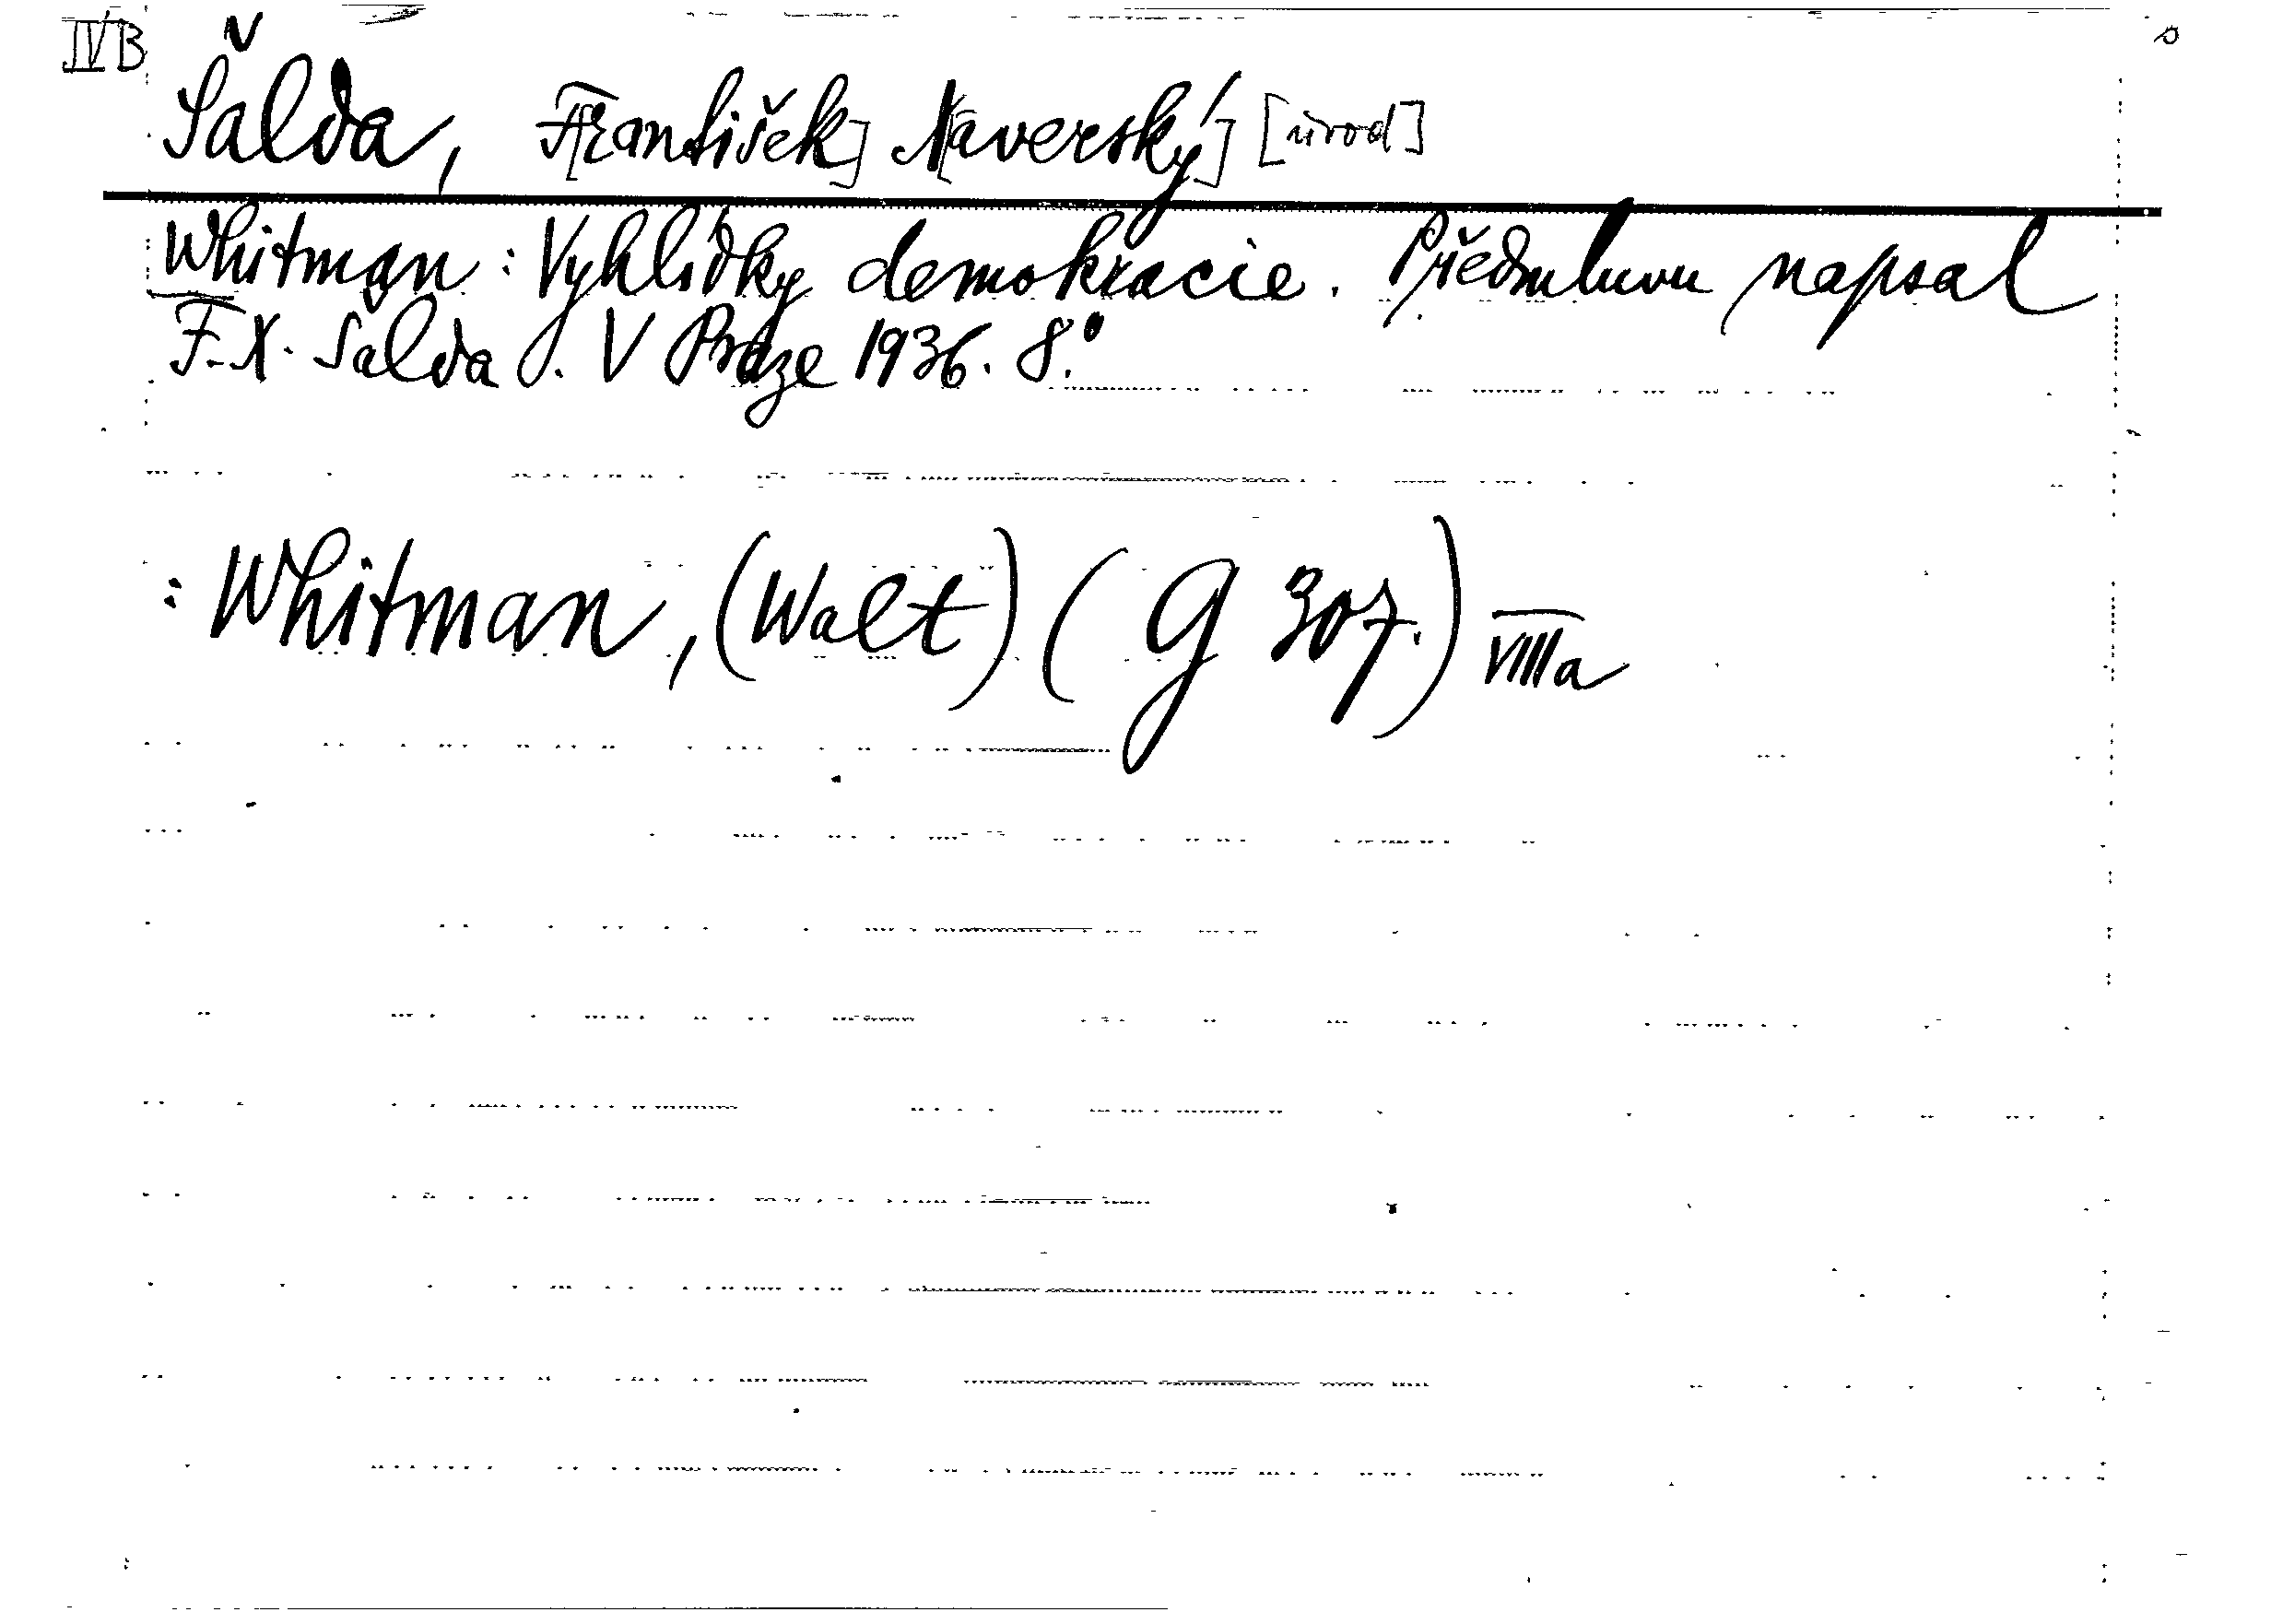 IV B
Šalda, F[rantišek] X[averský] [úvod]
Whitman: Vyhlídky demokracie. Předmluvu napsal
F. X. Šalda. V Praze 1936. 8°.
: Whitman, (Walt) (G 307.) VIIIa